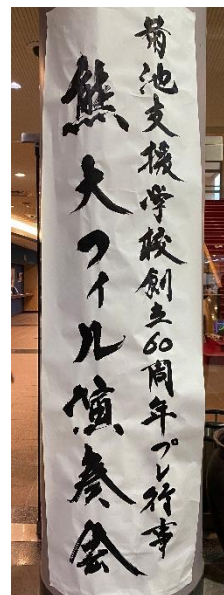 菊池支援学校創立60周年プレ行事
熊大フィル演奏会